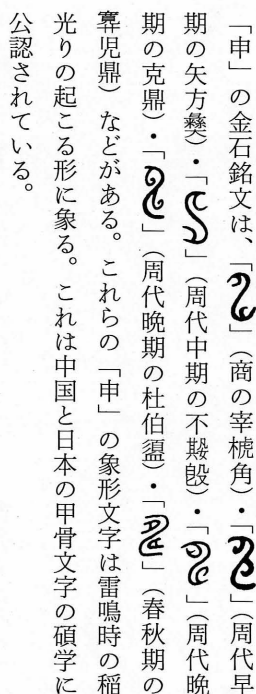 「申」の金石銘文は、「」（商の宰椃角）・「」（周代早
期の矢方彝）・「」（周代中期の不𡢁𣪘）・「」（周代晩
期の克鼎）・「」（周代晩期の杜伯盨）・「」（春秋期の
寡児鼎）などがある。これらの「申」の象形文字は雷鳴時の稲
光りの起こる形に象る。これは中国と日本の甲骨文字の碩学に
公認されている。